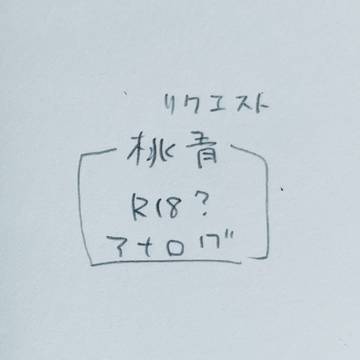 リクエスト
桃青
R18?
アナログ